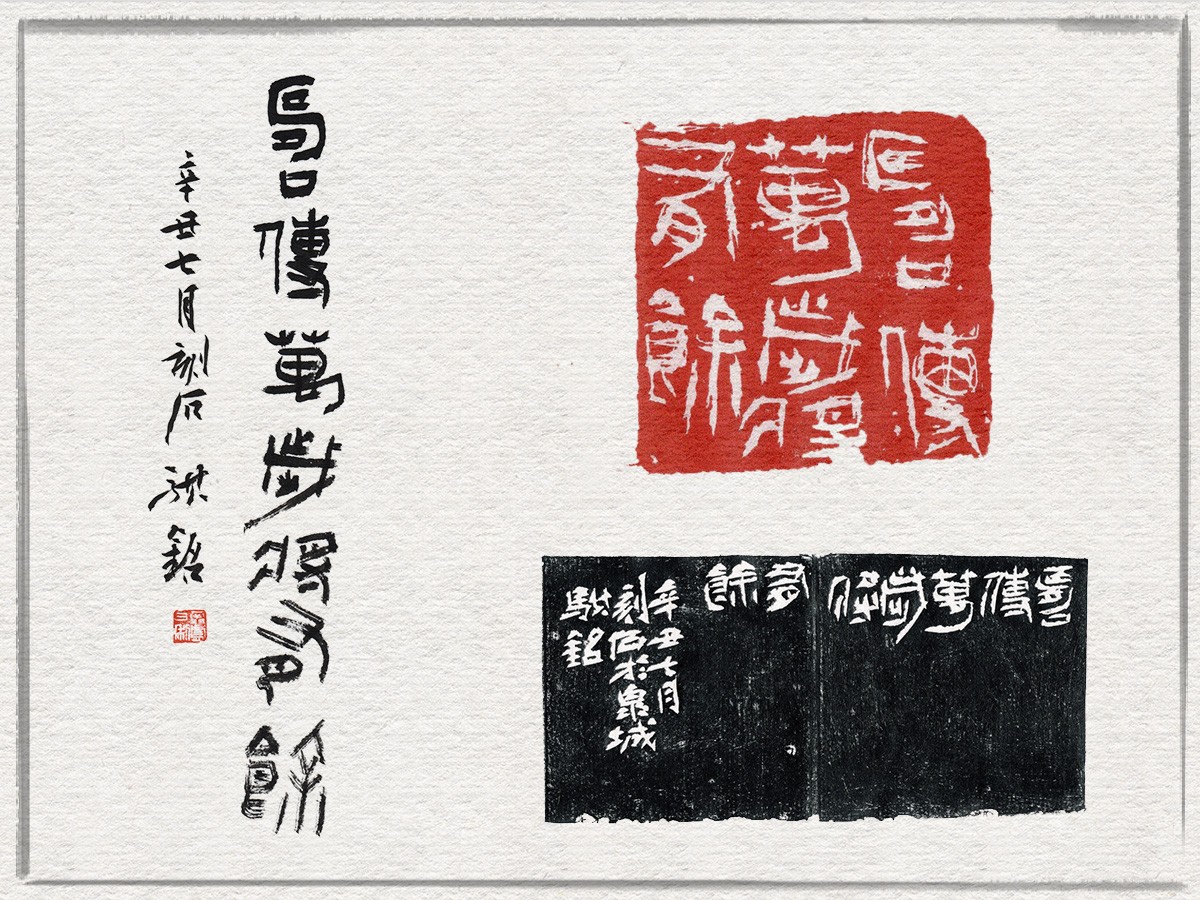 傳萬歲將有餘
辛丑七月刻石 銘
傳
萬歲將
有餘
傳
萬
歲
將
有
餘
辛丑七月
刻石於泉城
銘